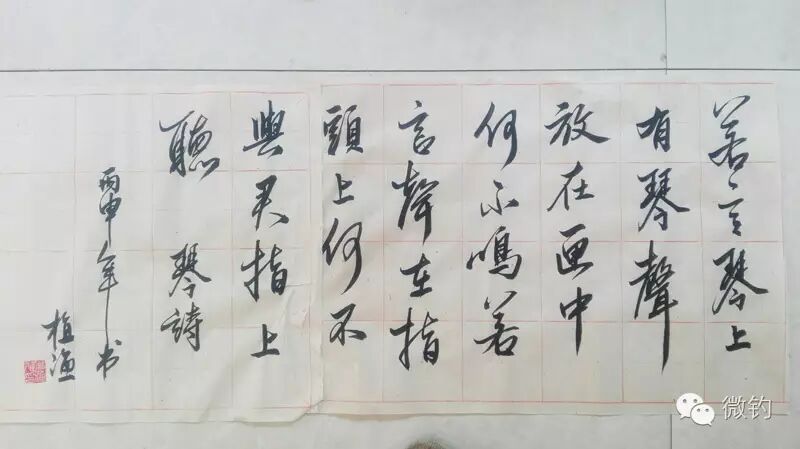 若言琴上
有琴聲
放在画中
何不鳴若
言聲在指
頭上何不
與君指上
聽 琴詩
丙申年书
植渔
微钓